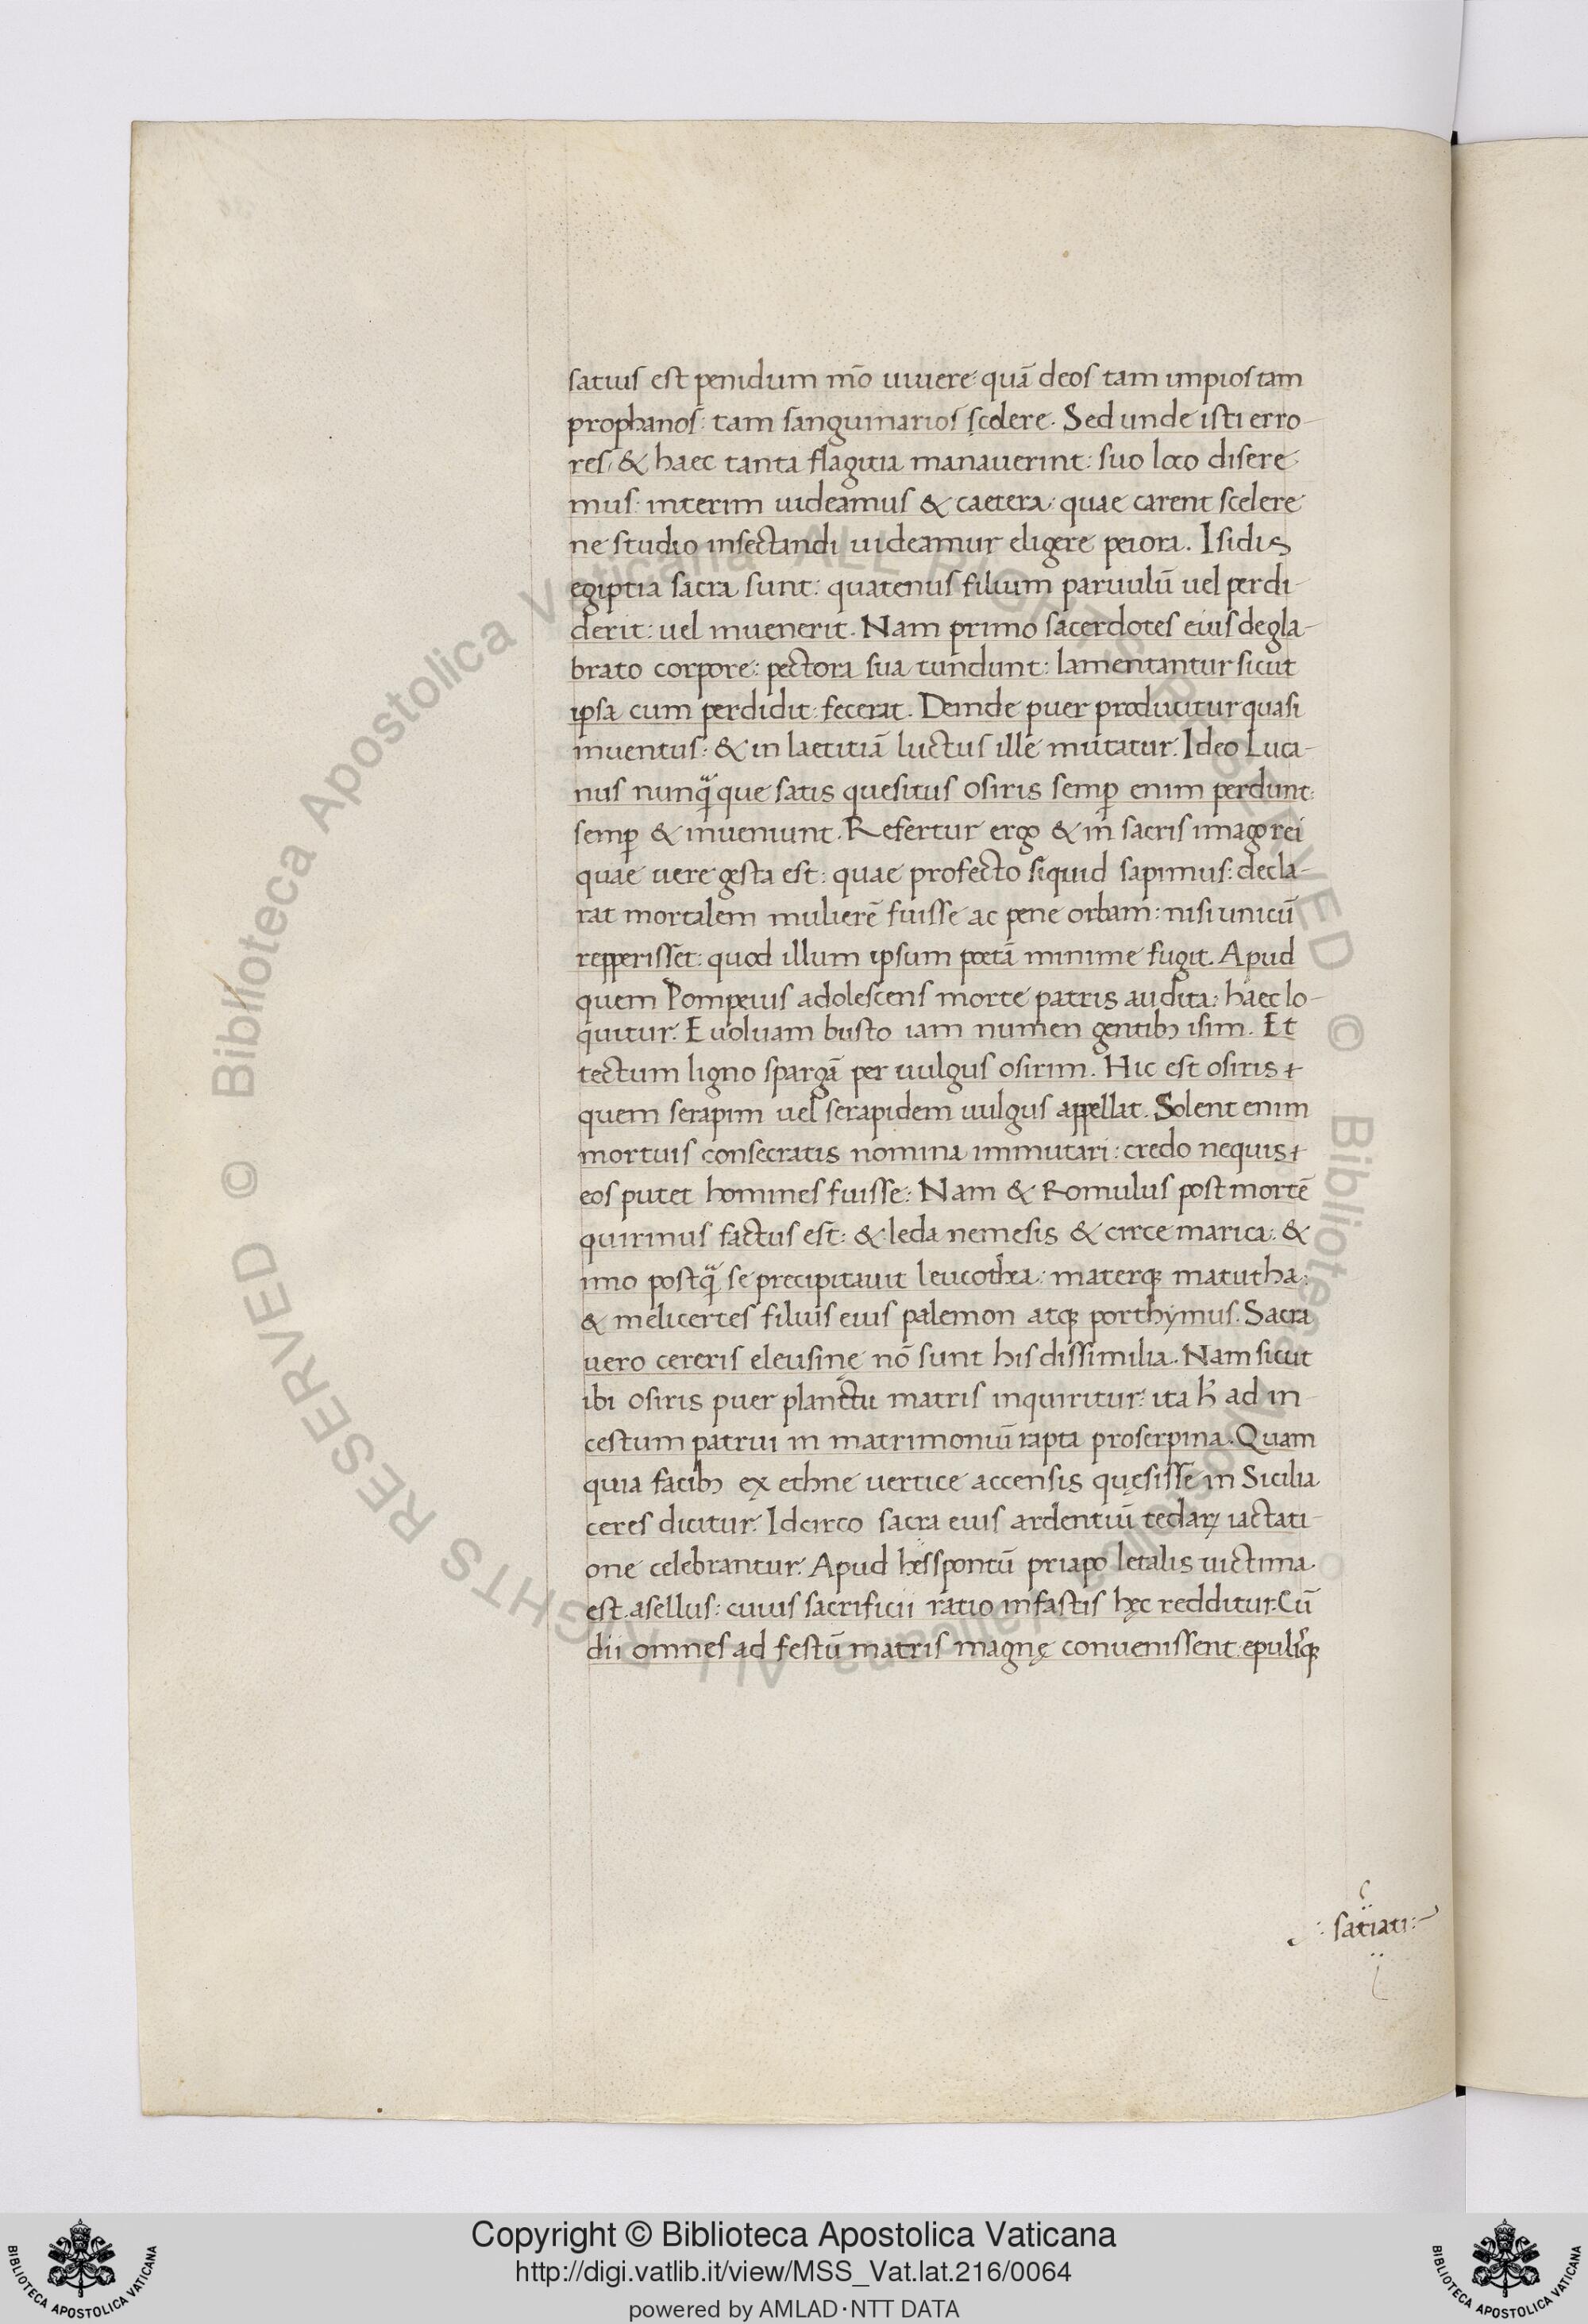 satius est penidum mo̅ uiuere: qua̅ deos tam impios tam
prophanos: tam sanguinarios scolere. Sed unde isti erro-
res: & haec tanta flagitia manauerint: suo loco disere-
mus: interim uideamus & caetera: quae carent scelere
ne studio insectandi uideamur eligere peiora. Isidis
egiptia sacra sunt: quatenus filium paruulu̅ uel perdi-
derit: uel inuenerit. Nam primo sacerdotes eius degla-
brato corpore: pectora sua tundunt: lamentantur sicut
ipsa cum perdidit: fecerat. Deinde puer producitur quasi
inuentus: & in laetitia̅ luctus ille mutatur. Ideo Luca-
nus nunq̃ que satis quesitus osiris semp̱ enim perdunt:
semp̱ & inueniunt. Refertur ergo & in sacris imago rei
quae uere gesta est: quae profecto siquid sapimus: decla-
rat mortalem muliere̅ fuisse ac pene orbam: nisi unicu̅
repperisset: quod illum ipsum poeta̅ minime fugit. Apud
quem Pompeius adolescens morte patris audita: haec lo-
quitur. Euoluam busto iam numen gentibꝫ isim. Et
tectum ligno sparga̅ per uulgus osirim. Hic est osiris
quem serapim uel serapidem uulgus appellat. Solent enim
mortuis consecratis nomina immutari: credo nequis
eos putet homines fuisse: Nam & Romulus post morte̅
quirinus factus est: & leda nemesis & circe marica: &
ino postq̃ se precipitauit leucothea: materqꝫ matutha:
& melicertes filius eius palemon atqꝫ porthymus. Sacra
uero cereris eleusine no̅ sunt his dissimilia. Nam sicut
ibi osiris puer planctu matris inquiritur: ita h̓ ad in-
cestum patrui in matrimoniu̅ rapta proserpina. Quam
quia facibꝫ ex ethne uertice accensis quęsisse in Sicilia
ceres dicitur. Idcirco sacra eius ardentiu̅ tedaꝝ iactati-
one celebrantur. Apud hesspontu̅ priapo letalis uictima
est asellus: cuius sacrificii ratio in fastis hęc redditur. Cu̅
dii omnes ad festu̅ matris magnę conuenissent epulisqꝫ
satiati:
Copyright © Biblioteca Apostolica Vaticana
http://digi.vatlib.it/view/MSS_Vat.lat.216/0064
powered by AMLAD·NTT DATA
BIBLIOTECA APOSTOLICA VATICANA
BIBLIOTECA APOSTOLICA VATICANA
© Biblioteca Apostolica Vaticana ALL RIGHTS RESERVED © Biblioteca Apostolica Vaticana ALL RIGHTS RESERVED